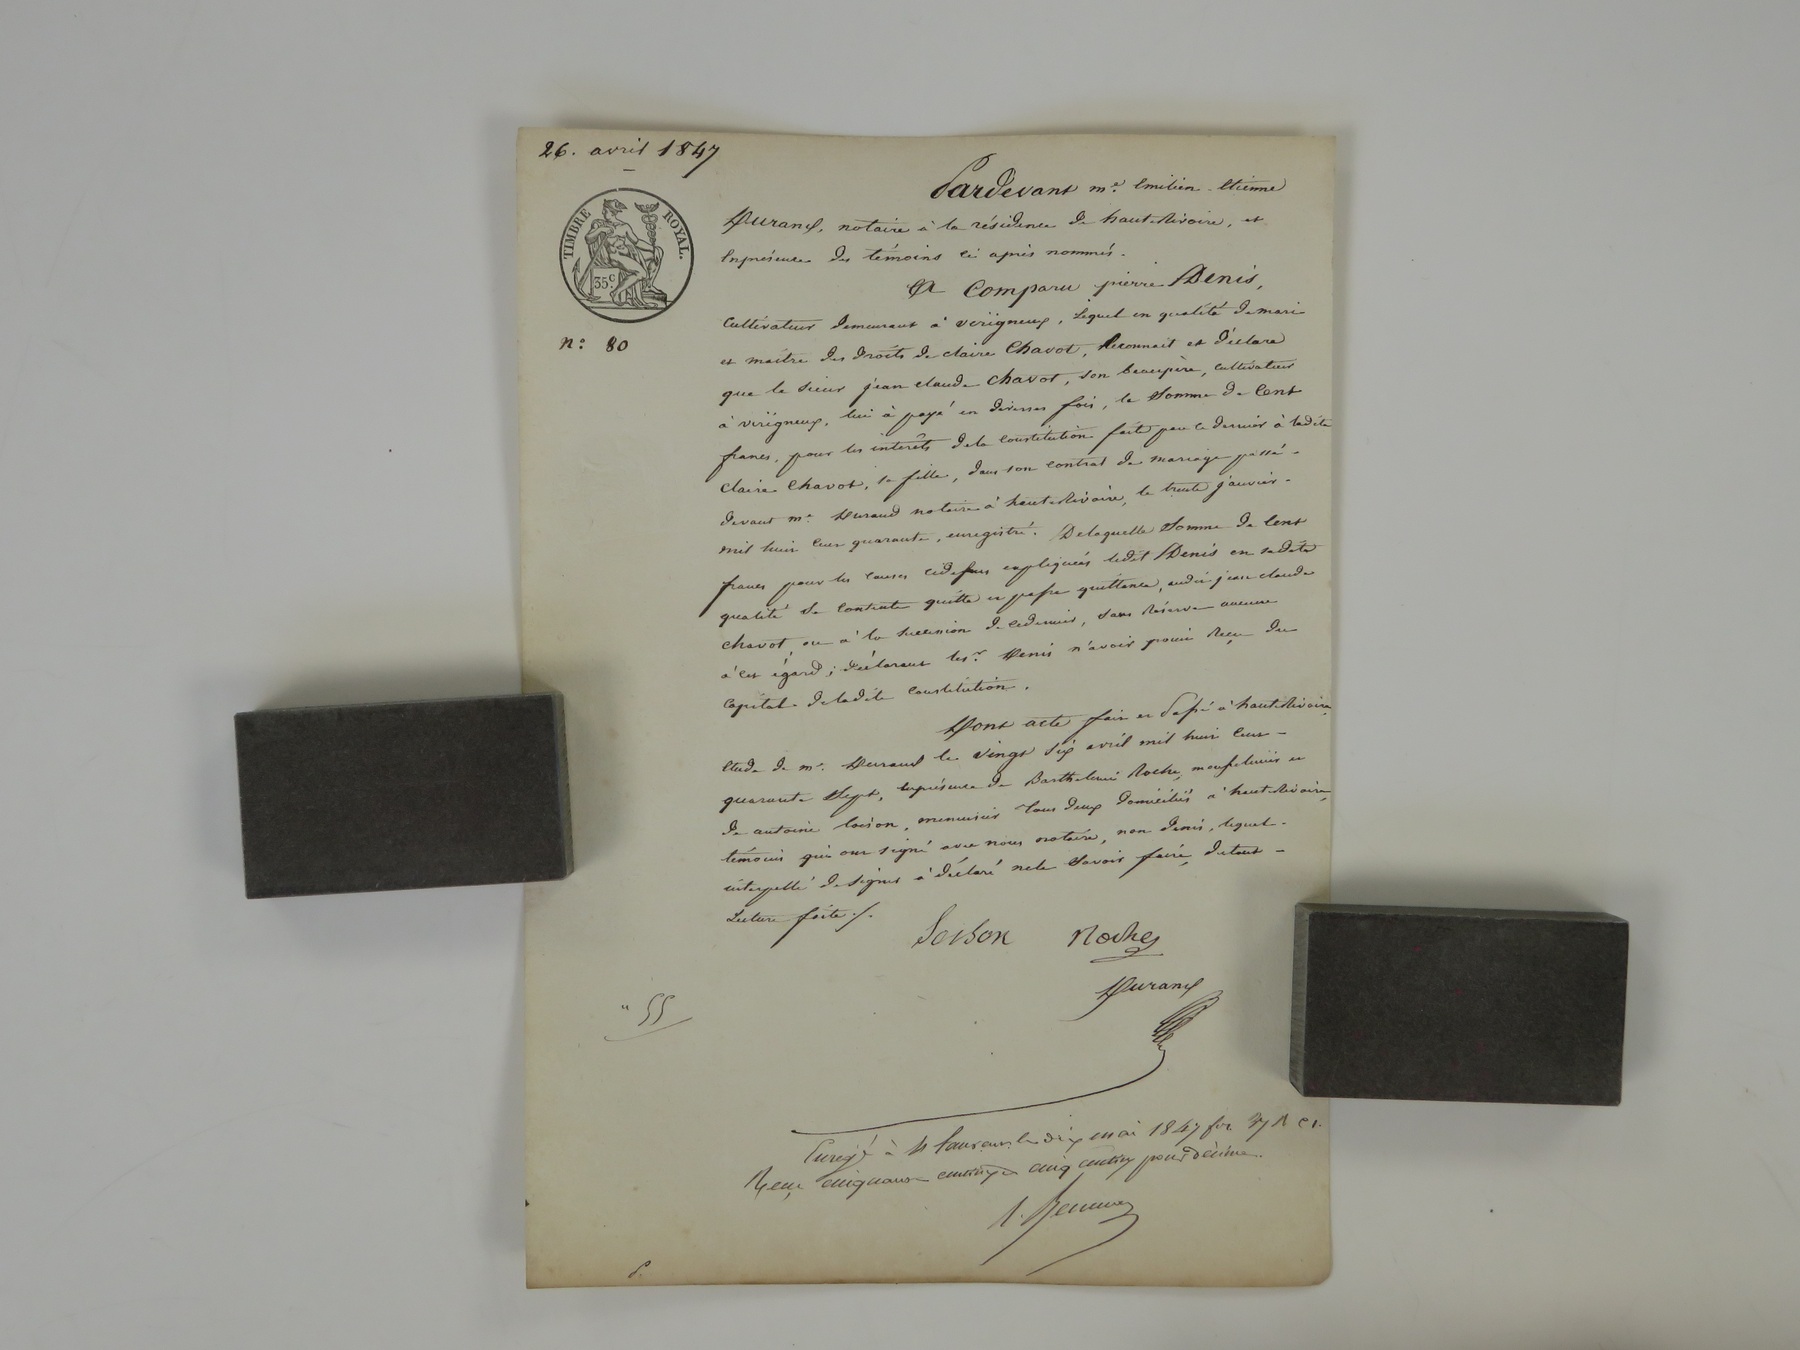 26. avril 1847
TIMBRE ROYAL.
35 c.
n° 80
Pardevant me. Emilien-Etienne
Durand, notaire à la résidence de haute Rivoire, et
enprésence des témoins ci après nommés.
A Comparu pierre Denis,
cultivateur demeurant à virigneux, lequel en qualité de mari
et maitre des droits de claire Chavot, Reconnait et déclare
que le sieur jean claude Chavot, son beaupère, cultivateur
à virigneux, lui à payé en diverses fois, la Somme de Cent
francs, pour les intérêts dela constitution faite par ce dernier à ladite
Claire Chavot, sa fille, dans son contrat de mariage passé-
devant me. Durand notaire à haute Rivoire, le trente janvier-
mil huit cent quarante, enregistré. De laquelle Somme de Cent
francs pour les causes cidessus expliquées ledit Denis en sadite
qualité se contente quitte et passe quittance, audit jean claude
Chavot, ou à la succession de cedernier, sans Réserve aucune
à cet égard; déclarant le sr. Denis n'avoir point Reçu du
Capital de ladite constitution.
Dont acte fait et Passé à haute Rivoire,
étude de me. Durand le vingt six avril mil huit cent-
quarante Sept, enprésence de Barthelemi Roche, et
de antoine Loison, menuisier Tous deux domiciliés à haute Rivoire,
témoins qui ont signé avec nous notaire, non denis, lequel-
interpellé de signer à déclaré nele Savoir faire, de tout-
Lecture faite ./.
Loison Roche
Durand
" 55
Enregé à St Laurent le dix mai 1847 fo. 37 R C 1.
Reçu cinquante centimes cinq centimes pour décime.